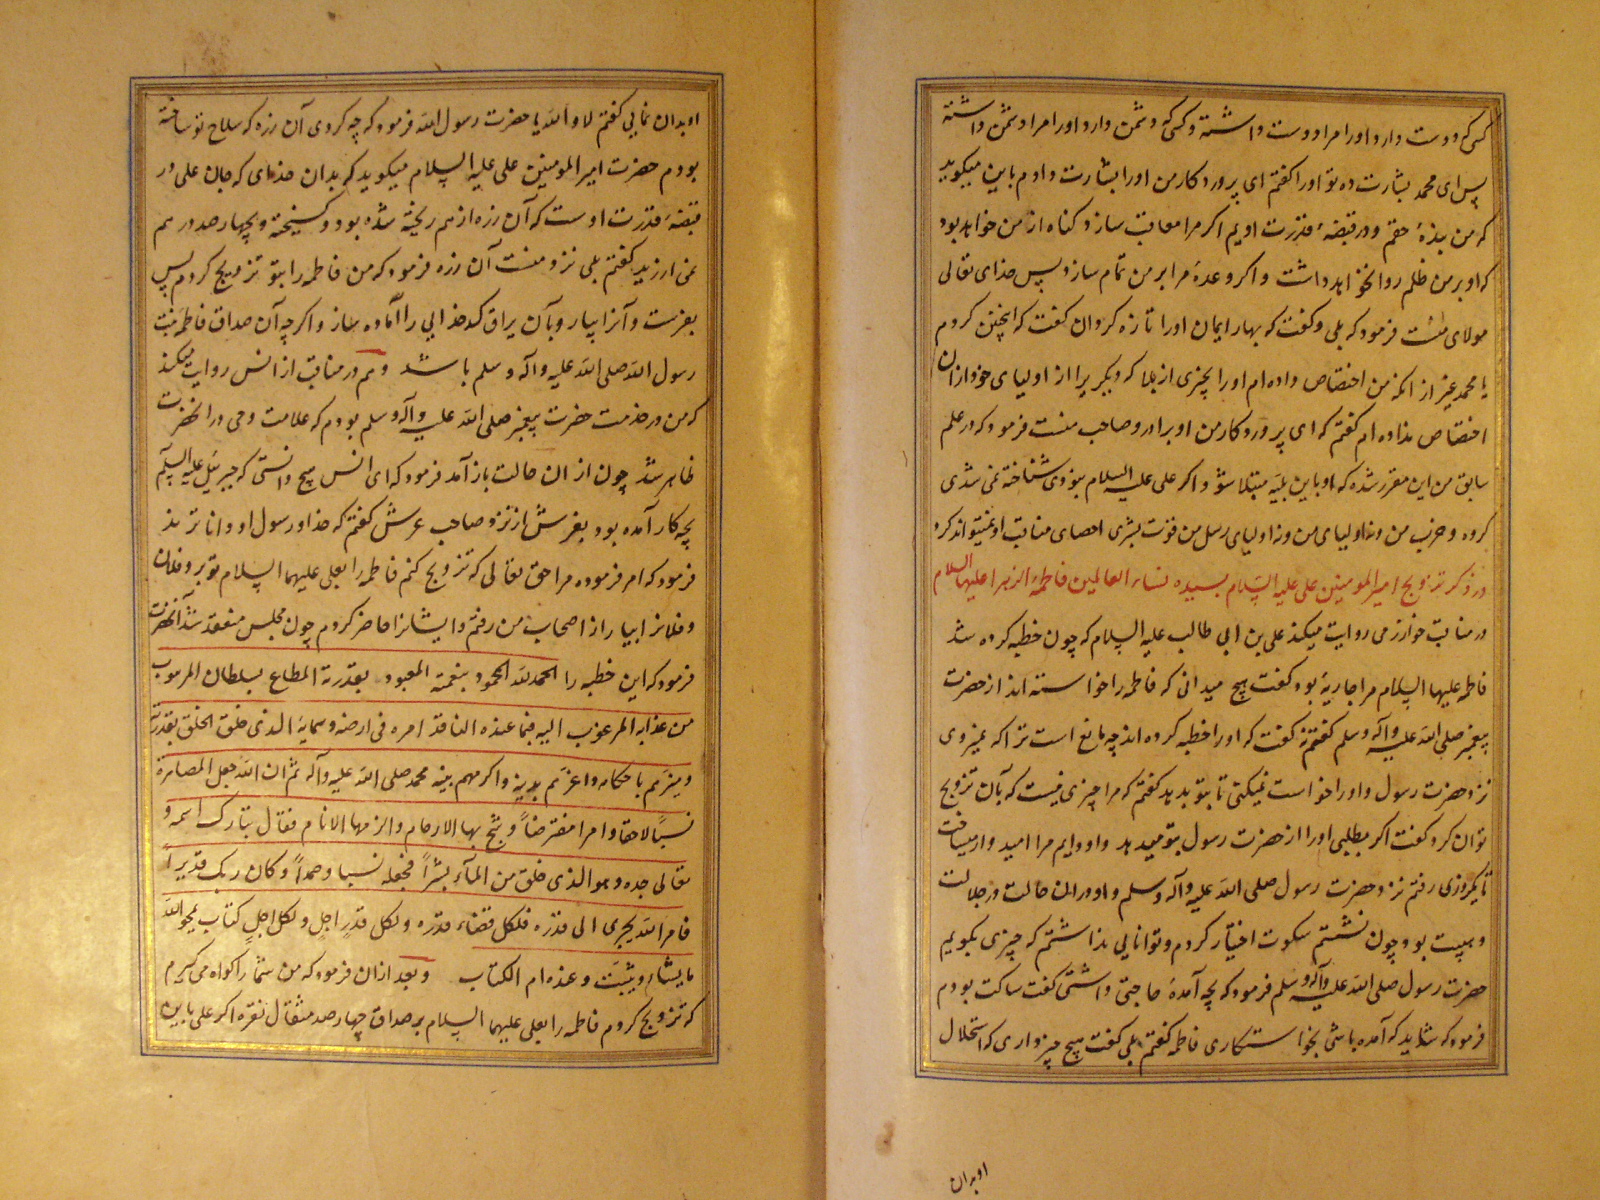 کسی که دوست دارد او را مرا دوست داشته و کسی که دشمن دارد او را مرا دشمن داشته
پس ای محمد بشارت ده تو او را کفتم ای پروردکار من او را بشارت دادم باین میکوید
که من بندهٔ حقم و در قبضهٔ قدرت اویم اکر مرا معاقب سازد کناه از من خواهد بود
که او بر من ظلم روا نخواهد داشت و اکر وعدهٔ مرا بر من تمام سازد پس خدای تعالی
مولای منست فرمود که بلی و کفت که بهار ایمان او را تازه کردان کفت که اینچنین کردم
یا محمد غیر از آنکه من اختصاص داده ام او را بچیزی از بلا که دیکریرا از اولیای خود ازان
اختصاص نداده ام کفتم که ای پروردکار من او برادر و صاحب منست فرمود که در علم
سابق من این مقرر شده که او باین بلیه مبتلا شود و اکر علی علیه السلام نبودی شناخته نمی شدی
کروه و حزب من و نه اولیای من و نه اولیای رسل من قوت بشری احصای مناقب او نمیتواند کرد
در ذکر تزویج امیر المومنین علی علیه السلام بسیده نساء العالمین فاطمة الزهرا علیها السلام
در مناقب خوارزمی روایت میکند علی بن ابی طالب علیه السلام که چون خطبه کرده شد
فاطمه علیها السلام مرا جاریهٔ بود کفت هیچ میدانی که فاطمه را خواسته اند از حضرت
پیغمبر صلی الله علیه و آله و سلم کفتم نه کفت که او را خطبه کرده اند چه مانع است ترا که نمیروی
نزد حضرت رسول و او را خواست نمیکنی تا بتو بدهد کفتم که مرا چیزی نیست که بآن تزویج
توان کرد کفت اکر بطلبی او را از حضرت رسول بتو میدهد و او دایم مرا امیدوار میساخت
تا یکروزی رفتم نزد حضرت رسول صلی الله علیه و آله و سلم و او در آن حالت در جلالت
و هیبت بود چون نشستم سکوت اختیار کردم و توانایی نداشتم که چیزی بکویم
حضرت رسول صلی الله علیه و آله و سلم فرمود که بچه آمدهٔ حاجتی داشتی کفت ساکت بودم
فرمود که شاید که آمده باشی بخواستکاری فاطمه کفتم بلی کفت هیچ چیز داری که استحلال
او بدان
او بدان نمایی کفتم لا والله یا حضرت رسول الله فرمود که چه کردی آن زره که سلاح تو ساخته
بودم حضرت امیر المومنین علی علیه السلام میکوید که بدان خدای که جان علی در
قبضهٔ قدرت اوست که آن زره از هم ریخته شده بود و کسیخته و بچهار صد درهم
نمی ارزید کفتم بلی نزد منست آن زره فرمود که من فاطمه را بتو تزویج کردم پس
بفرست و آنرا بیار و بآن یراق کدخدایی را آماده ساز و اکر چه آن صداق فاطمه بنت
رسول الله صلی الله علیه و آله و سلم باشد و هم در مناقب از انس روایت میکند
که من در خدمت حضرت پیغمبر صلی الله علیه و آله و سلم بودم که علامت وحی در آنحضرت
ظاهر شد چون از ان حالت باز آمد فرمود که ای انس هیچ دانستی که جبرئیل علیه السلام
بچه کار آمده بود بفرش از نزد صاحب عرش کفتم که خدا و رسول او داناترند
فرمود که امر فرموده مرا حق تعالی که تزویج کنم فاطمه را بعلی علیهما السلام تو برو فلان
و فلانرا بیار از اصحاب من رفتم و ایشانرا حاضر کردم چون مجلس منعقد شد آنحضرت
فرمود که این خطبه را الحمد لله المحمود بنعمته المعبود بقدرته المطاع بسلطان المرهوب
من عذابه المرغوب الیه فیما عنده النافذ امره فی ارضه و سمایه الذی خلق الخلق بقدرته
و میزهم باحکامه و اعزهم بدینه و اکرمهم بنبیه محمد صلی الله علیه و آله ثم ان الله جعل المصاهرة
نسبا لاحقا و امرا مفترضا و شج بها الارحام و الزمها الانام فقال تبارک اسمه و
تعالی جده و هو الذی خلق من المآء بشرا فجعله نسبا و صهرا و کان ربک قدیرا
فامر الله یجری الی قدره فلکل قضاء قدره و لکل قدر اجل و لکل اجل کتاب یمحو الله
ما یشاء و یثبت و عنده ام الکتاب و بعد ازان فرمود که من شما را کواه می کیرم
که تزویج کردم فاطمه را بعلی علیهما السلام بر صداق چهار صد مثقال نقره اکر علی باین